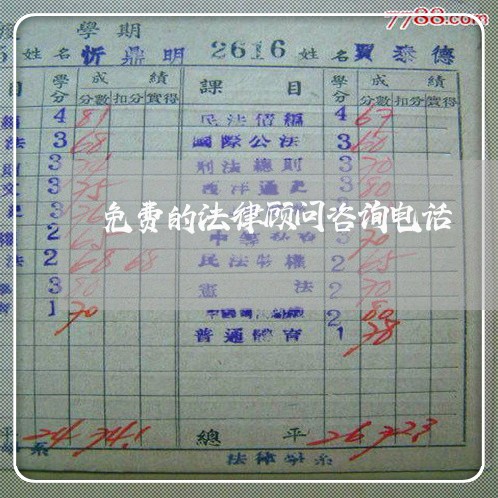 7788.com
學期
5 姓名 忻鼎明 2616 姓名 賈泰德
目 學分 成績 課目 學分 成績
分數 扣分 實得 分數 扣分 實得
4 81 民法債編 4 67
法 3 68 國際公法 3 60
則 3 刑法總則 3 70
3 75 西洋通史 3 80
3
免费的法律顾问咨询电话
2 3 70
法 2 68 68 民法物權 2 65
3 80 憲法 2 70
1 70 2 80
普通體育 1 78
平 24 74.1 總平 26 72.3
系 法律學系